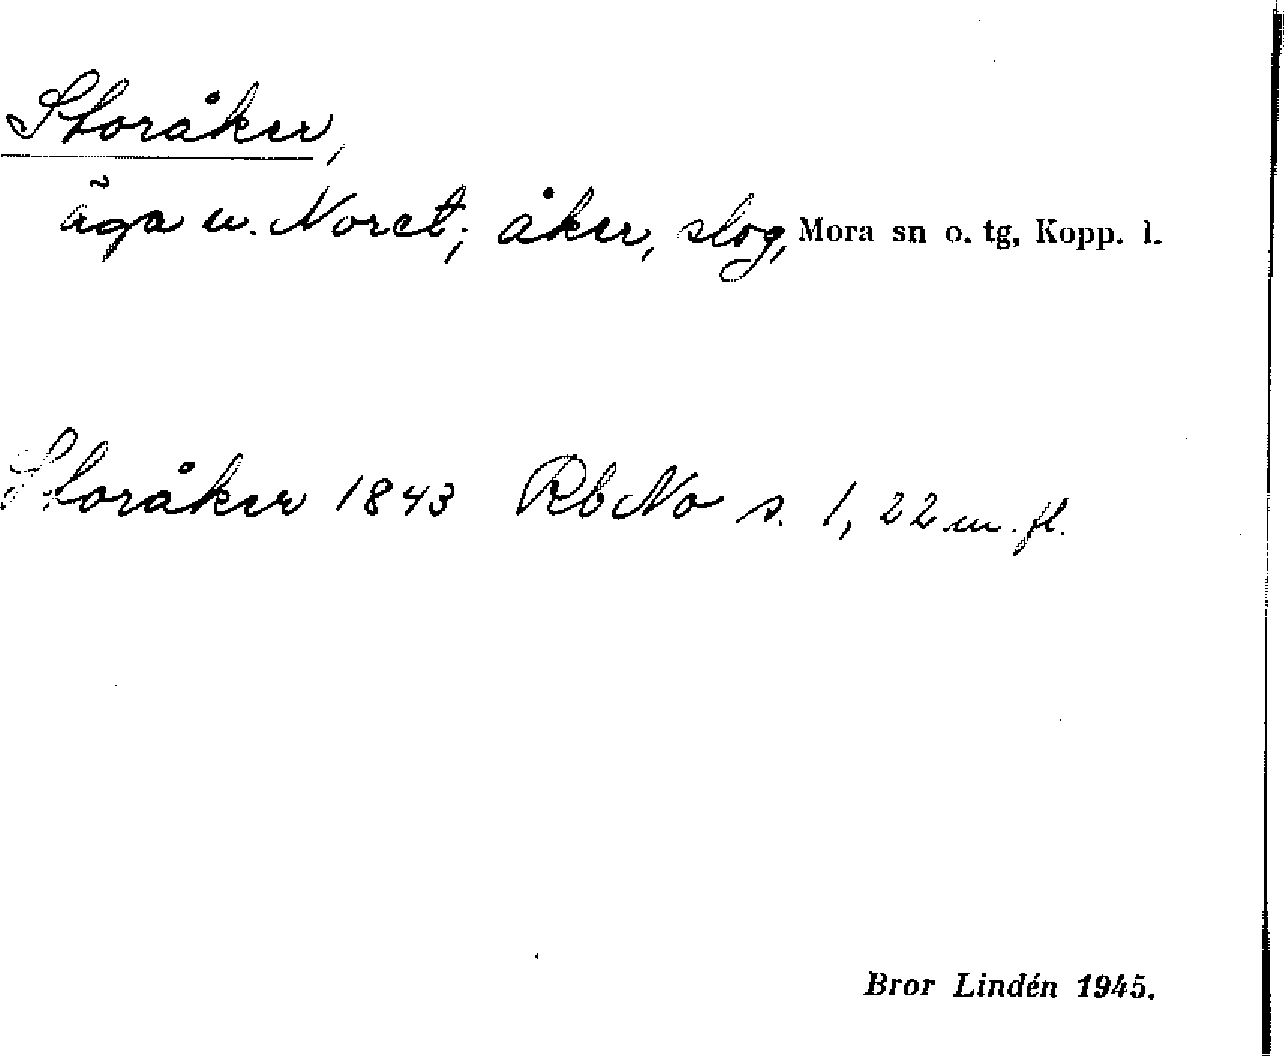 Storåker,
äga u. Noret; åker, slog, Mora sn o. tg, Kopp. l.
Storåker 1843 Rb No s. 1, 22 m. fl.
Bror Lindén 1945.